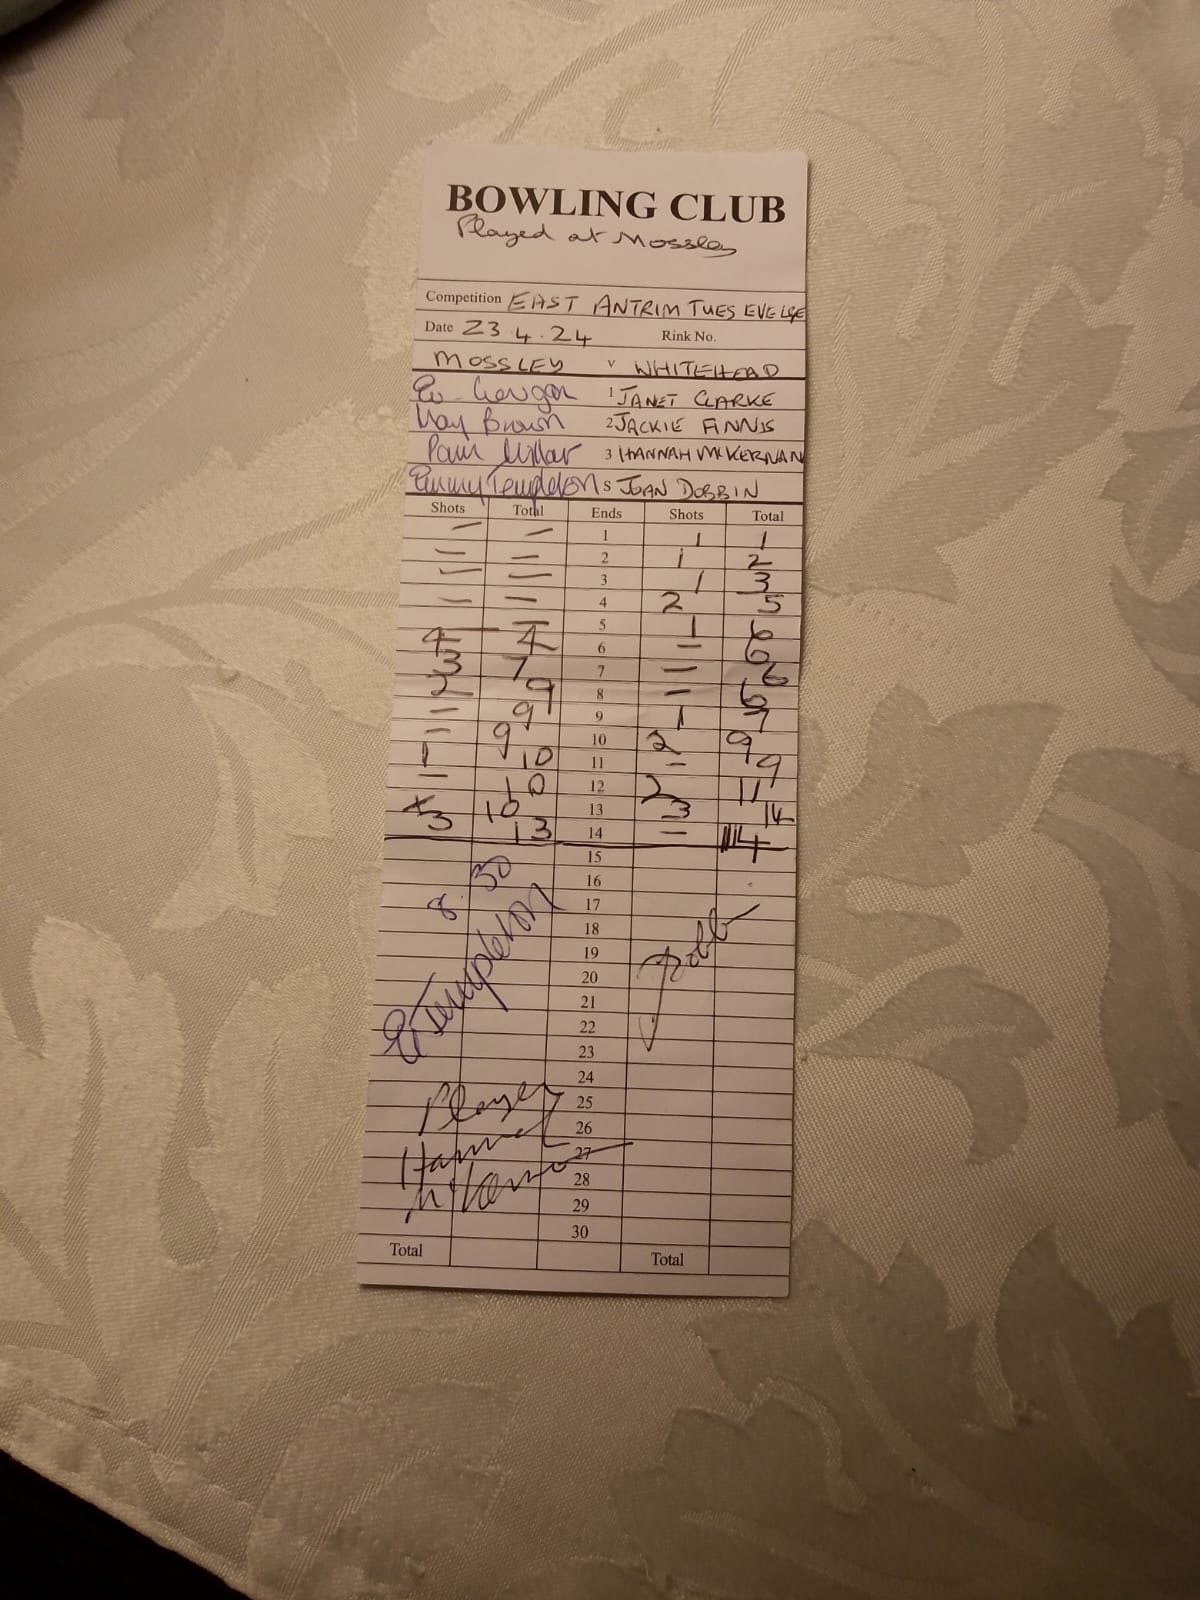 BOWLING CLUB
Played at Mossley
Competition EAST ANTRIM TUES EVE LGE
Date 23.4.24 Rink No.
MOSSLEY v WHITEHEAD
1 JANET CLARKE
Kay Brown 2 JACKIE FINNIS
Pam Millar 3 HANNAH McKERNAN
Emmy Templeton S JOAN DOBBIN
Shots Total Ends Shots Total
– – 1 1 1
– – 2 1 2
– – 3 1 3
– – 4 2 5
– – 5 1 6
4 4 6 – 6
3 7 7 – 6
2 9 8 – 6
– 9 9 1 7
– 9 10 2 9
1 10 11 – 9
– 10 12 2 11
10 13 3 14
3 13 14 – 14
15
8 30 16
17
18
E Templeton 19 JDobb
20
21
22
23
24
Player 25
26
Hannah 27
McKernan 28
29
30
Total Total